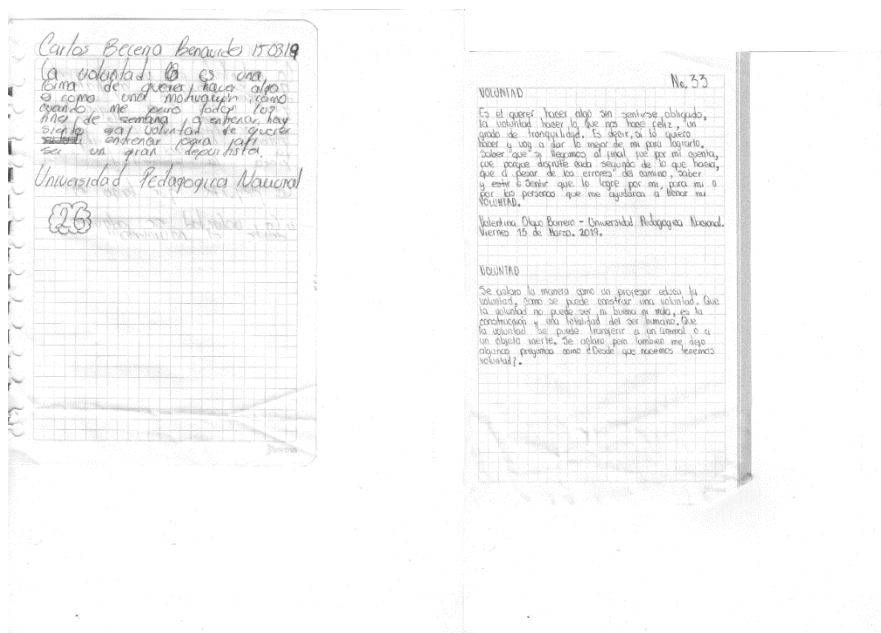 Carlos Becerra Benavides 150319
La voluntad: es una
forma de querer hacer algo
o como una motivacion, como
cuando me paro todos los
fines de semana a entrenar, hay
siento esa voluntad de querer
entrenar para
ser un gran deportista.
Universidad Pedagogica Nacional
26
No. 33
VOLUNTAD
Es el querer hacer algo sin sentirse obligado,
la voluntad hacer lo que nos hace feliz, un
grado de tranquilidad. Es decir, si lo quiero
hacer y voy a dar lo mejor de mi para lograrlo.
Saber que si llegamos al final fue por mi cuenta,
fue porque disfrute cada segundo de lo que hacia,
que a pesar de los errores del camino, saber
y sentir que lo logre por mi, para mi o
por las personas que me ayudaron a llenar mi
VOLUNTAD.
Valentina Olaya Borrero - Universidad Pedagogica Nacional.
Viernes 15 de Marzo. 2019.
VOLUNTAD
Se aclaro la manera como un profesor educa tu
voluntad, como se puede construir una voluntad. Que
la voluntad no puede ser ni buena ni mala, es la
construccion y una totalidad del ser humano. Que
la voluntad se puede transferir a un animal o a
un objeto inerte. Se aclaro pero tambien me dejo
algunas preguntas como ¿Desde que nacemos tenemos
voluntad?.